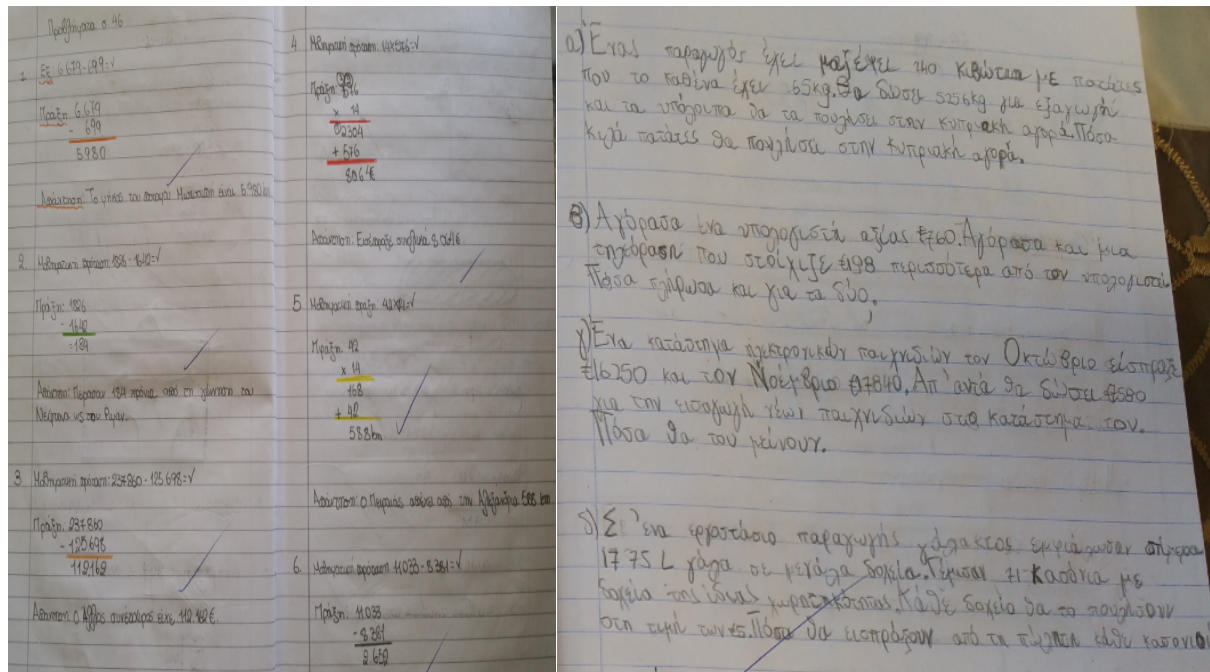 Προβλήματα σ.46
1. ΕΞ: 6.679-699=ν
Πράξη: 6.679
- 699
5980
Απάντηση: Το μήκος του ποταμού Μισισιπή είναι 5980 km
2. Μαθηματική πρόταση: 1826 - 1642=ν
Πράξη: 1826
- 1642
=184
Απάντηση: Πέρασαν 184 χρόνια από τη γέννηση του
Νεύτωνα ως του Ρίμαν.
3 Μαθηματική πρόταση: 237860 - 125698=ν
Πράξη: 237860
- 125698
112162
Απάντηση: Ο άλλος συνέταιρος είχε 112.162€.
4 Μαθηματική πρόταση: 14x576=ν
Πράξη: 576
x 14
02304
+ 576
8064€
Απάντηση: Εισέπραξε συνολικά 8.064€
5 Μαθηματική πράξη: 42x14=ν
Πράξη: 42
x 14
168
+ 42
588km
Απάντηση: Ο Πειραιάς απέχει από την Αλεξάνδρια 588 km
6. Μαθηματική πρόταση: 11033 - 8381=ν
Πράξη: 11033
- 8381
2652
α) Ένας παραγωγός έχει μαζέψει 240 κιβώτια με πατάτες
που το καθένα έχει 65kg. Θα δώσει 5256kg για εξαγωγή
και τα υπόλοιπα θα τα πουλήσει στην κυπριακή αγορά. Πόσα
κιλά πατάτες θα πουλήσει στην κυπριακή αγορά.
β) Αγόρασα ένα υπολογιστή αξίας €760. Αγόρασα και μια
τηλεόραση που στοίχιζε €198 περισσότερα από τον υπολογιστή.
Πόσα πλήρωσα και για τα δύο;
γ) Ένα κατάστημα ηλεκτρονικών παιχνιδιών τον Οκτώβριο είσπραξε
€16250 και τον Νοέμβριο €17840. Απ' αυτά θα δώσει €7580
για την εισαγωγή νέων παιχνιδιών στο κατάστημα του.
Πόσα θα του μείνουν.
δ) Σ' ένα εργοστάσιο παραγωγής γάλακτος εμφιάλωσαν σήμερα
1775 L γάλα σε μεγάλα δοχεία. Γέμισαν 71 κασόνια με
δοχεία της ίδιας χωρητικότητας. Κάθε δοχείο θα το πουλήσουν
στη τιμή των €5. Πόσα θα εισπράξουν από τη πώληση κάθε